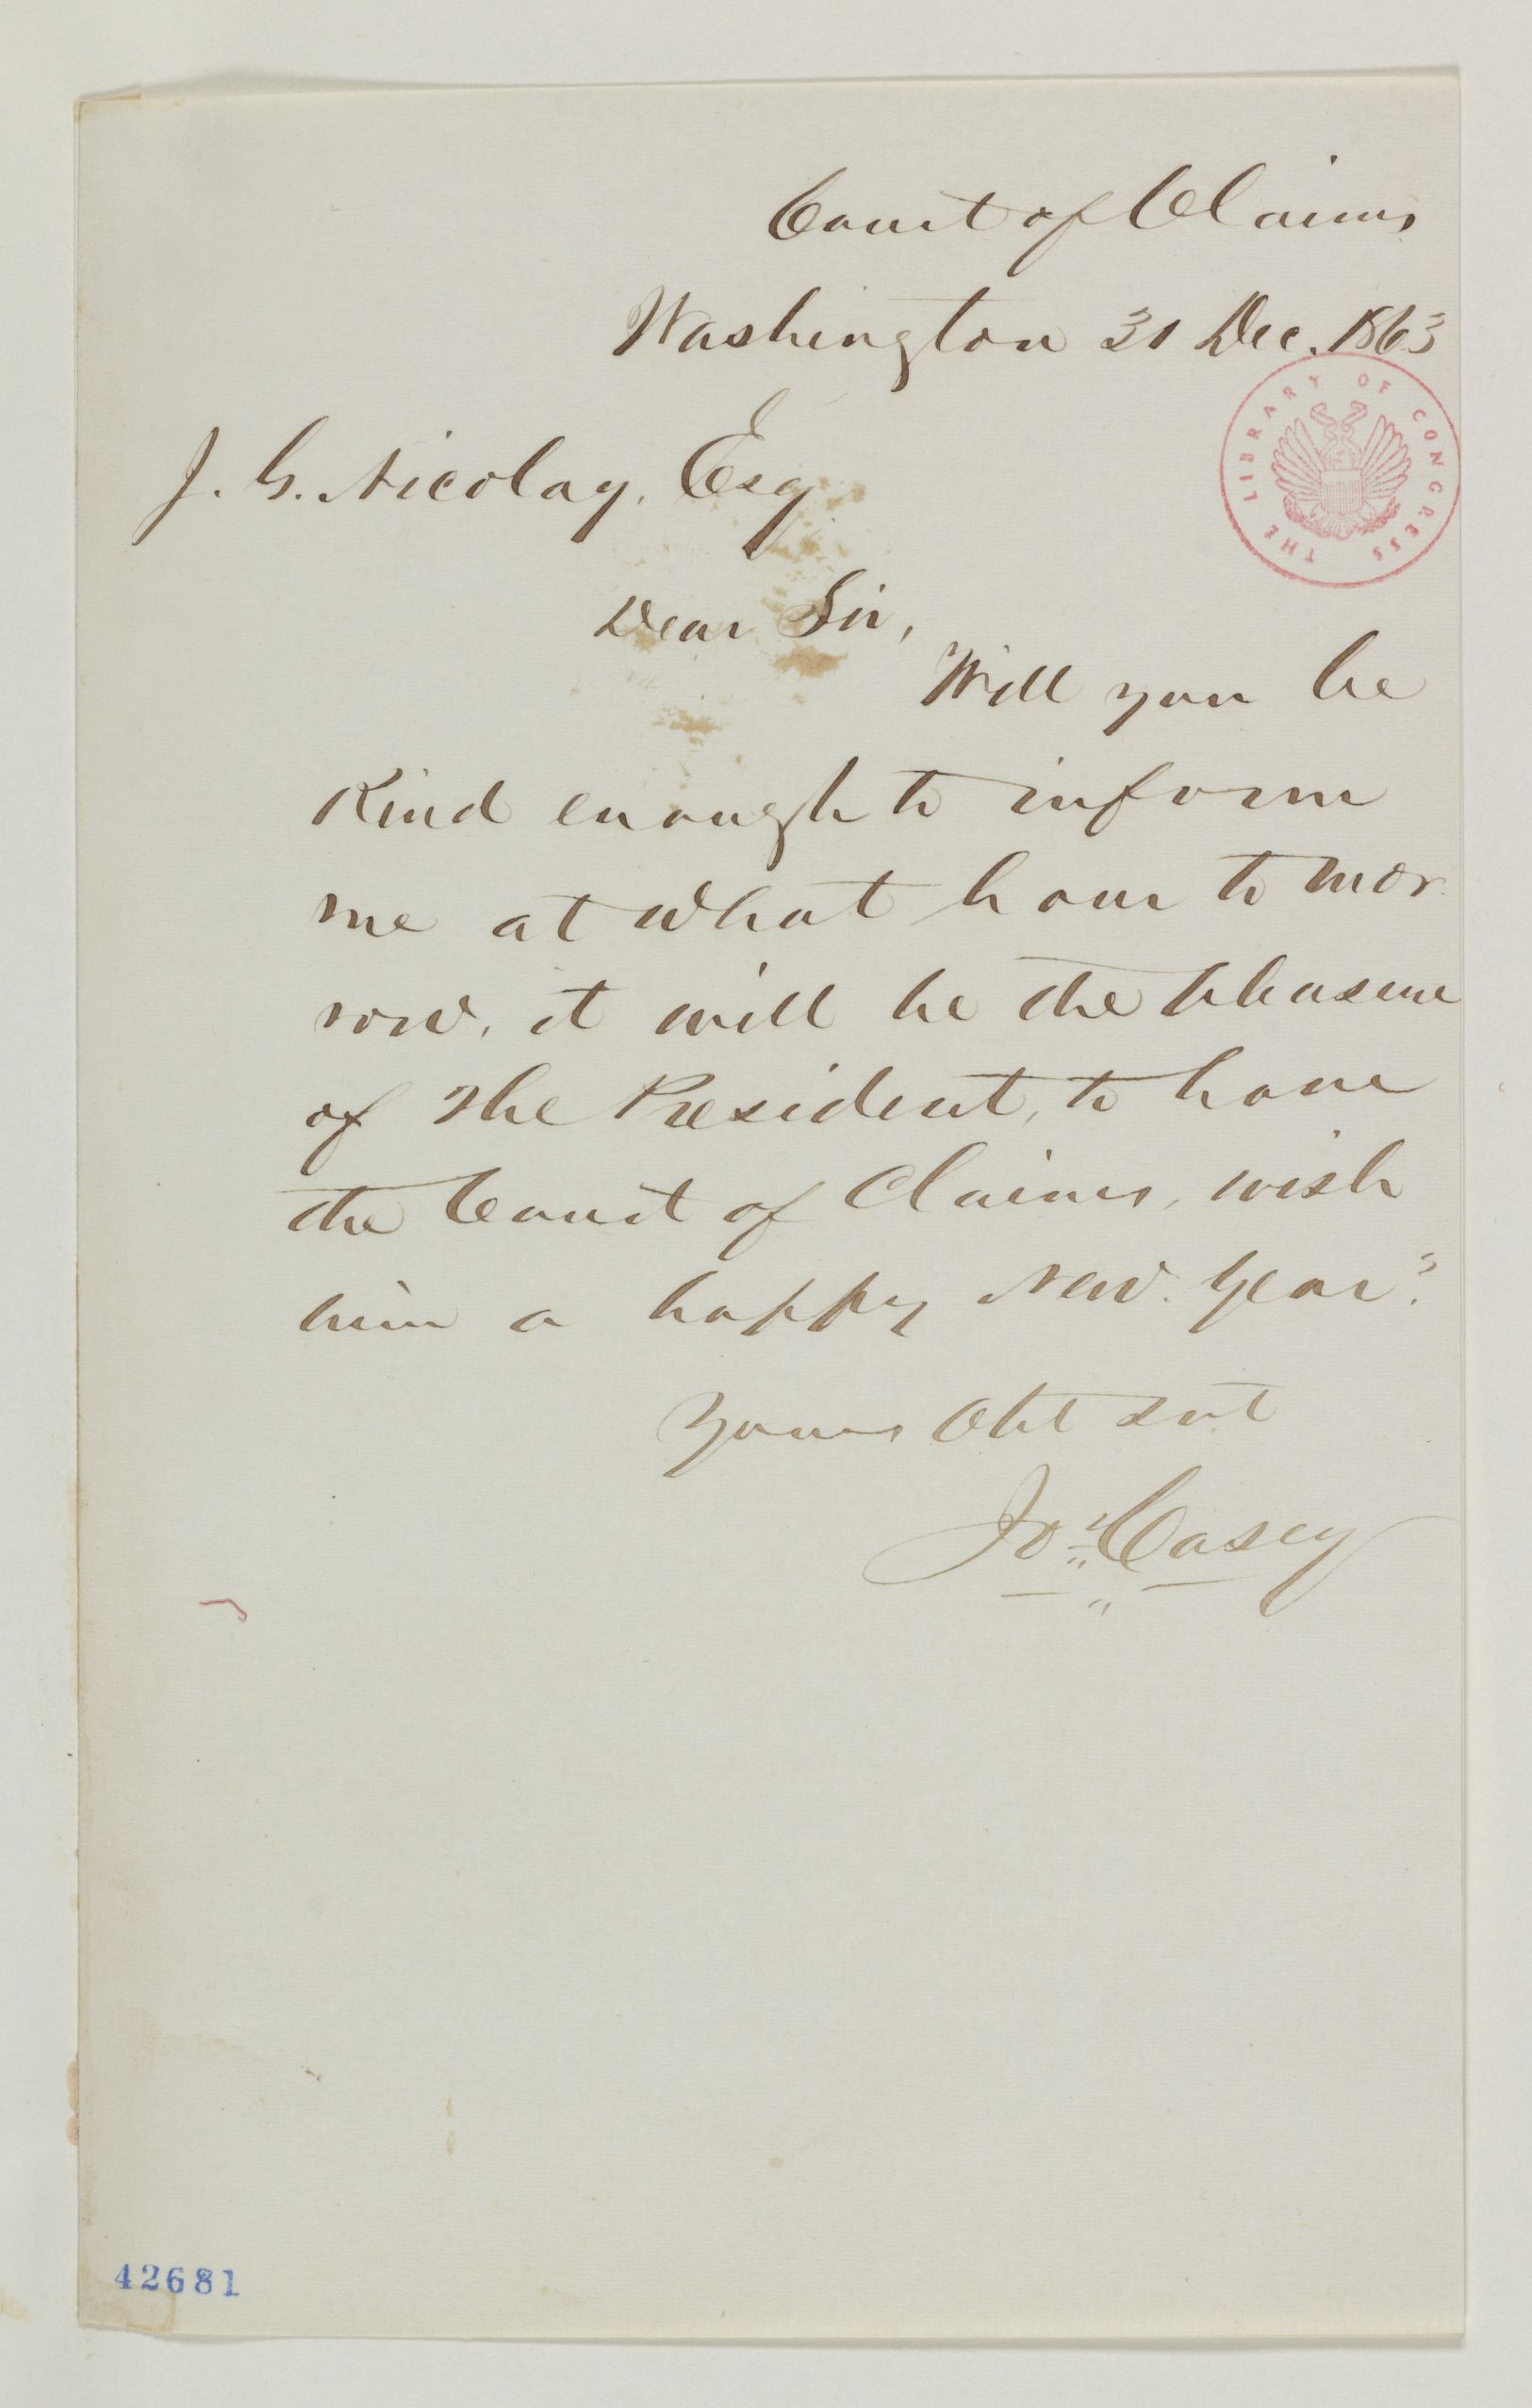 Court of Claims
Washington 31 Dec. 1863
THE LIBRARY OF CONGRESS
J. G. Nicolay, Esq
Dear Sir,
Will you be
Kind enough to inform
me at what hour to mor
row, it will be the pleasure
of the President, to have
the Court of Claims, wish
him a happy New Year?
Yours Obt Svt
Jos Casey
42681